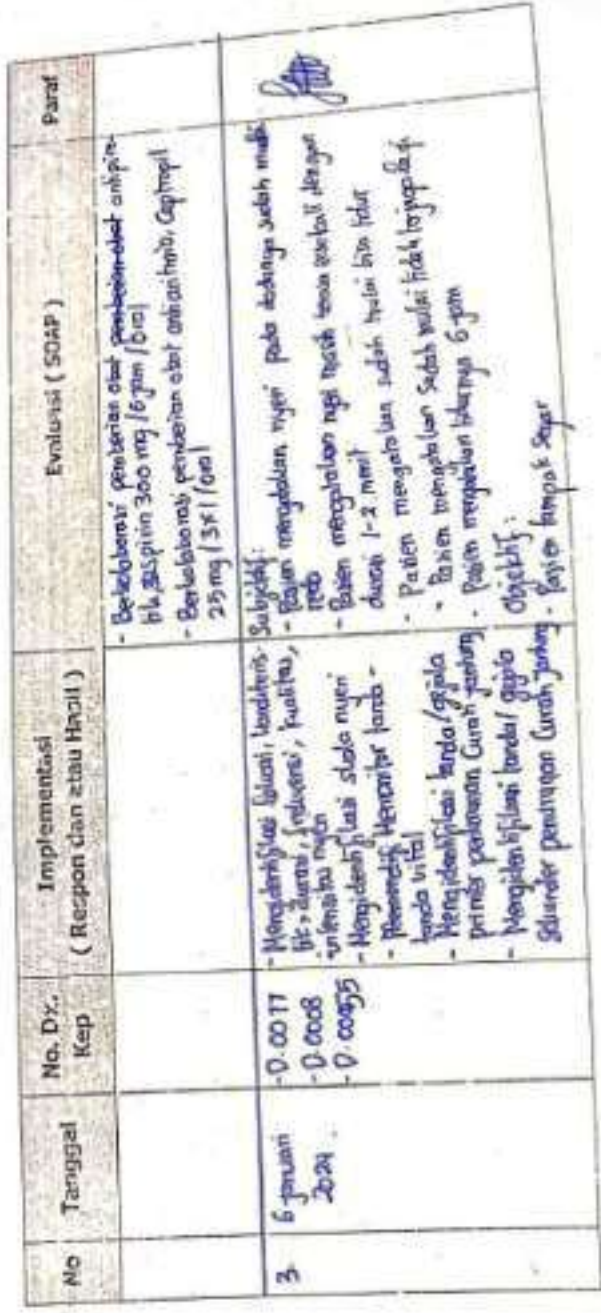 No
Tanggal
No. Dx. Kep
Implementasi
( Respon dan atau Hasil )
Evaluasi ( SOAP )
Paraf
- Berkolaborasi pemberian obat pemberian obat antipla-
25 mg / 3x1 / oral
3
6 januari
2024.
- D.0077
- D.0008
- Mengidentifikasi lokasi, karakteris-
tik, durasi, frekuensi, kualitas,
intensitas nyeri
- Mengidentifikasi skala nyeri
Memonitor tanda-
tanda vital
- Mengidentifikasi tanda/gejala
primer penurunan Curah jantung
- Mengidentifikasi tanda/gejala
sekunder penurunan Curah jantung
Subjektif:
- Pasien mengatakan nyeri pada dadanya sudah mulai
- Pasien mengatakan nyeri masih terasa kembali dengan
durasi 1-2 menit
- Pasien mengatakan sudah mulai bisa tidur
- Pasien mengatakan sudah mulai tidak terjaga lagi
- Pasien mengatakan tidurnya 6 jam
Objektif:
- Pasien tampak segar